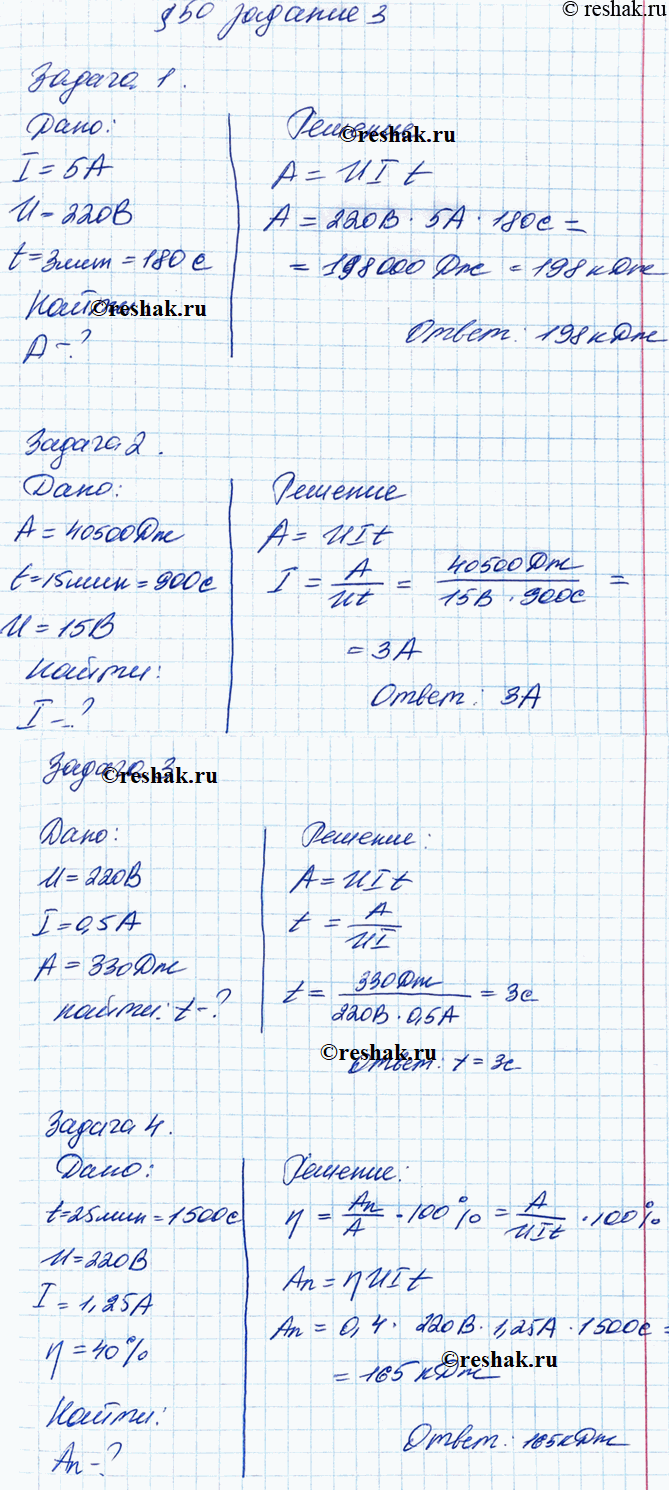 © reshak.ru
§50 задание 3
Задача 1.
Дано:
I = 5А
U = 220В
t = 3мин = 180 с
Найти
©reshak.ru
А - ?
Решение
©reshak.ru
A = UI t
A = 220В · 5А · 180с =
= 198000 Дж = 198 кДж
Ответ: 198 кДж
Задача 2.
Дано:
А = 40500Дж
t = 15мин = 900с
U = 15В
Найти:
I - ?
Решение
A = UIt
I = A/Ut = 40500Дж/15В · 900с =
= 3А
Ответ: 3А
Задача 3
©reshak.ru
Дано:
U = 220В
I = 0,5А
А = 330Дж
найти: t - ?
Решение:
A = UIt
t = A/UI
t = 330Дж/220В · 0,5А = 3с
©reshak.ru
Ответ: t = 3с
Задача 4.
Дано:
t = 25мин = 1500с
U = 220В
I = 1,25А
η = 40%
Найти:
Ап - ?
Решение:
η = Ап/А · 100% = А/UIt · 100%
Ап = ηUIt
Ап = 0,4 · 220В · 1,25А · 1500с =
©reshak.ru
= 165 кДж
Ответ: 165кДж